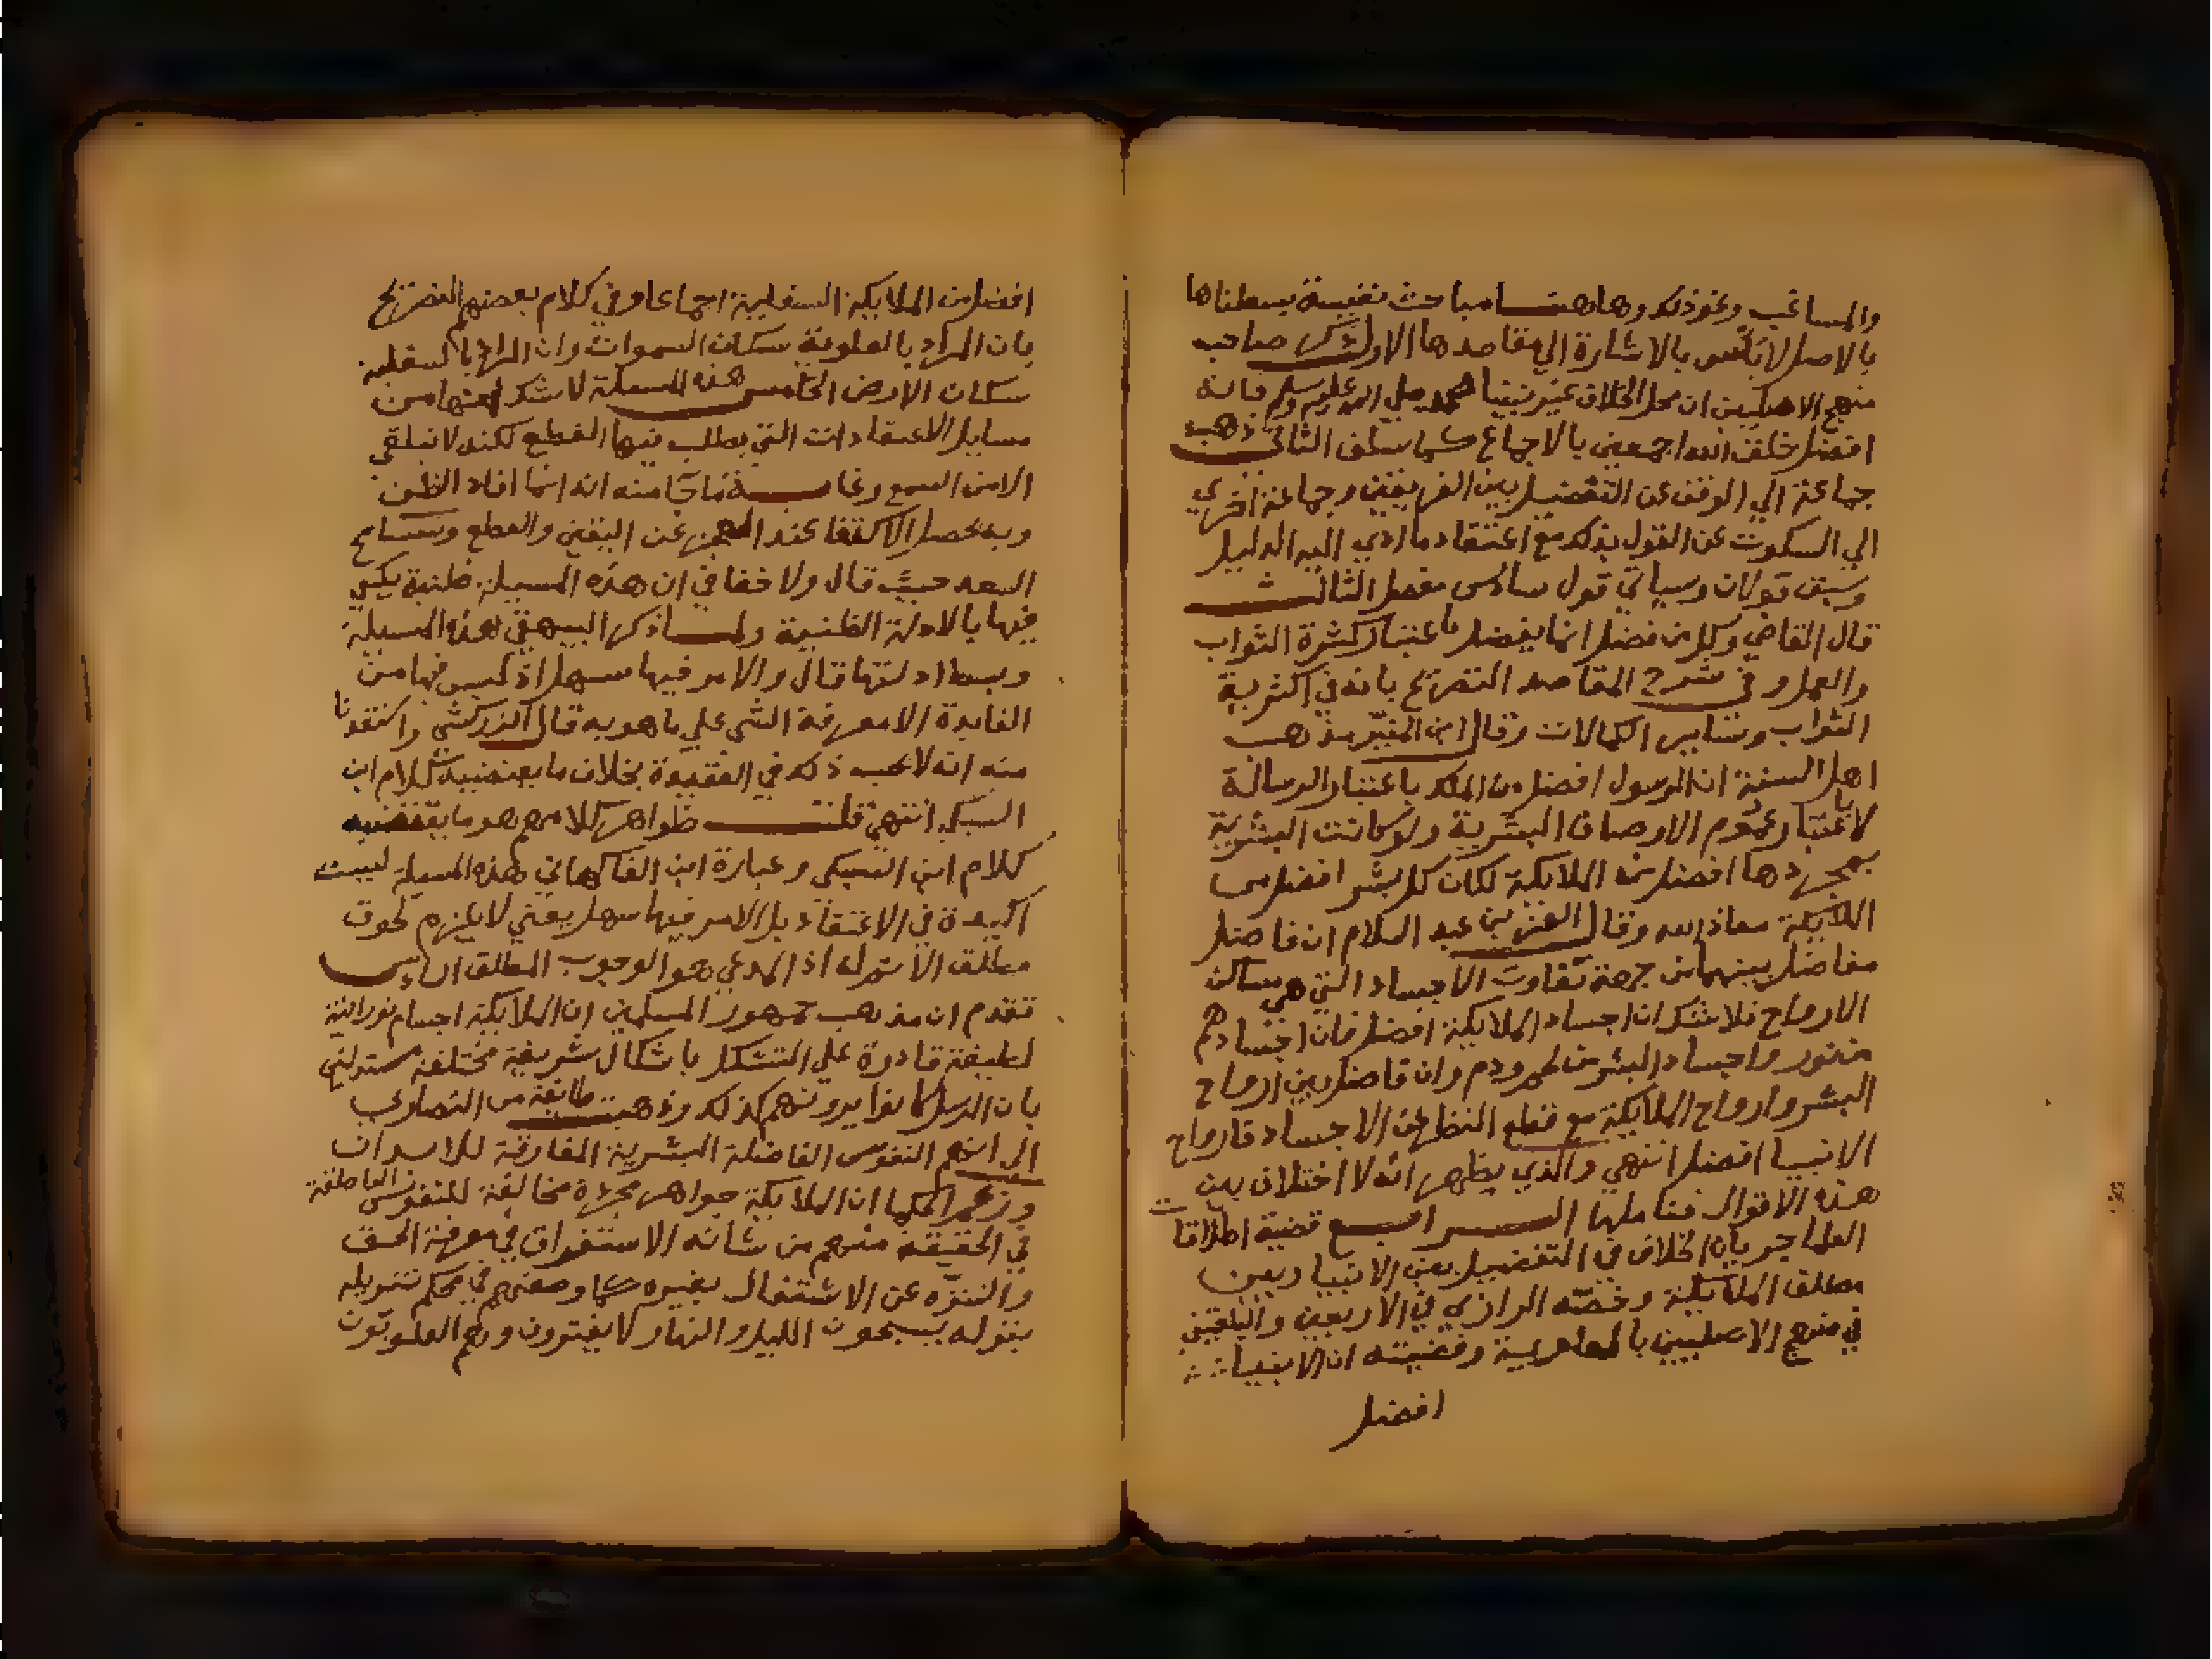 والمساغب ونحو ذلك وهاهنا مباحث نفيسة بسطناها
بالاصل لا باس بالاشارة الي مقاصدها الاول ذكر صاحب
منهج الاصليين ان محل الخلاف غير نبينا محمد صلي الله عليه وسلم فانه
افضل خلق الله اجمعين بالاجماع كما سلف الثاني ذهب
جماعة الي الوقف عن التفضيل بين الفريقين وجماعة اخري
الي السكوت عن القول بذلك مع اعتقاد ما ادي اليه الدليل
وسبق قولان وسياتي قول سادس مفصل الثالث
قال القاضي وكل من فضل انما يفضل باعتبار كثرة الثواب
والعمل وفي شرح المقاصد التصريح بانه في اكثرية
الثواب وساير الكمالات وقال ابن المنير مذهب
اهل السنة ان الرسول افضل من الملك باعتبار الرسالة
لا باعتبار عموم الاوصاف البشرية ولو كانت البشرية
بمجردها افضل من الملايكة لكان كل بشر افضل من
الملايكة معاذ الله وقال العز بن عبد السلام ان فاضل
مفاضل بينهما من جهة تفاوت الاجساد التي هي مساكن
الارواح فلا شك ان اجساد الملايكة افضل فان اجسادهم
من نور واجساد البشر من لحم ودم وان فاضل بين ارواح
البشر وارواح الملايكة مع قطع النظر عن الاجساد فارواح
الانبيا افضل انتهي والذي يظهر انه لا اختلاف بين
هذه الاقوال فتاملها الرابع قضية اطلاقات
العلما جريان الخلاف في التفضيل بين الانبيا وبين
مطلق الملايكة وخصه الرازي في الاربعين والبلقيني
في منهج الاصليين بالعلوية وقضيته ان الانبيا
افضل
افضل من الملايكة السفلية اجماعا وفي كلام بعضهم التصريح
بان المراد بالعلوية سكان السموات وان المراد بالسفلية
سكان الارض الخامس هذه المسئلة لا شك انها من
مسايل الاعتقادات التي يطلب فيها القطع لكنه لا يتلقي
الا من السمع وغاية ما جا منه انه انما افاد الظن
وبه يحصل الاكتفا عند العجز عن اليقين والقطع وتسامح
السعد حيث قال ولا خفا في ان هذه المسيلة ظنية يكتفي
فيها بالادلة الظنية ولما ذكر البيهقي هذه المسيلة
وبسط ادلتها قال والامر فيها سهل اذ ليس فيها من
الفايدة الا معرفة الشي علي ما هو به قال الزركشي واستفدنا
منه انه لا يجب ذلك في العقيدة بخلاف ما يقتضيه كلام ابن
السبكي انتهي قلت ظواهر كلامهم هو ما يقتضيه
كلام ابن السبكي وعبارة ابن الفاكهاني هذه المسيلة ليست
اكيدة في الاعتقاد بل الامر فيها سهل يعني لا يلزم لحوق
مطلق الاثم له اذ المدعي هو الوجوب المطلق السادس
تقدم ان مذهب جمهور المسلمين ان الملايكة اجسام نورانية
لطيفة قادرة علي التشكل باشكال شريفة مختلفة مستدلين
بان الرسل كانوا يرونهم كذلك وذهبت طايفة من النصاري
الي انهم النفوس الفاضلة البشرية المفارقة للابدان
وزعم الحكما ان الملايكة جواهر مجردة مخالفة للنفوس الناطقة
في الحقيقة منهم من شانه الاستغراق في معرفة الحق
والتنزه عن الاشتغال بغيره كما وصفهم في محكم تنزيله
بقوله يسبحون الليل والنهار لا يفترون وهم العلويون